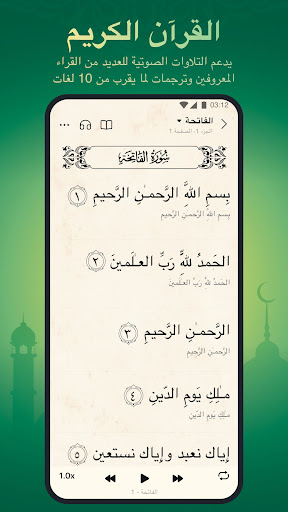 القرآن الكريم
يدعم التلاوات الصوتية للعديد من القراء
المعروفين وترجمات لما يقرب من 10 لغات
03:12
الفاتحة
الجزء 1، الصفحة 1
سُورَةُ الفَاتِحَةِ
بِسمِ اللَّهِ الرَّحمـٰنِ الرَّحيمِ ١
بِسمِ اللَّهِ الرَّحمـٰنِ الرَّحيمِ
الحَمدُ لِلَّهِ رَبِّ العـٰلَمينَ ٢
الحَمدُ لِلَّهِ رَبِّ العـٰلَمينَ
الرَّحمـٰنِ الرَّحيمِ ٣
الرَّحمـٰنِ الرَّحيمِ
مـٰلِكِ يَومِ الدّينِ ٤
مـٰلِكِ يَومِ الدّينِ
إِياك نعبد وإِياك نستعين ٥
1.0x
الفاتحة - 1